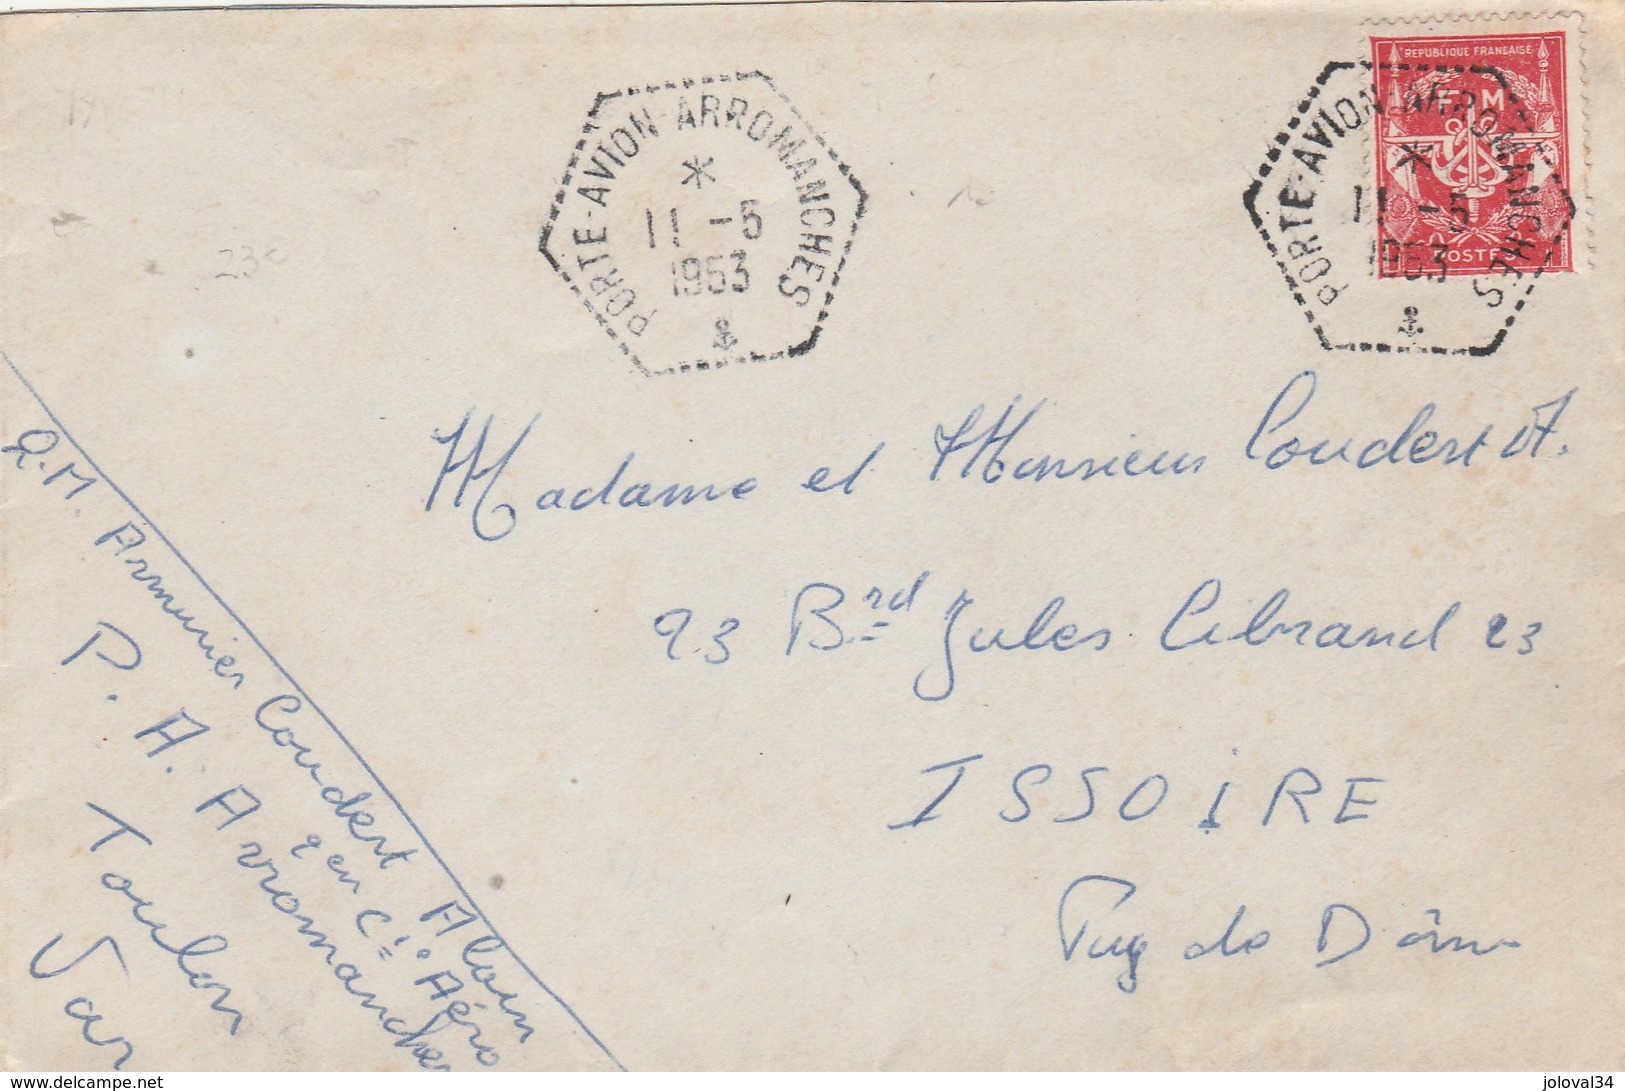 PORTE-AVION ARROMANCHES
*
11 -5
1953
REPUBLIQUE FRANCAISE
F M
POSTES
PORTE-AVION ARROMANCHES
*
11 -5
1953
23€
Madame et Monsieur Coudert A.
23 Brd Jules Cibrand 23
ISSOIRE
Puy de Dôme
Q.M. Armurier Coudert Alain
2 en Cie Aéro
P.A. Arromanches
Toulon
Var
www.delcampe.net
joloval34